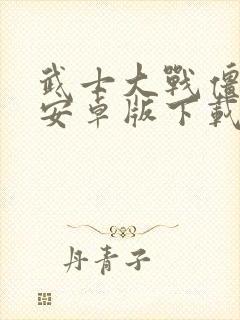 武士大戰僵
安卓版下載
丹青子